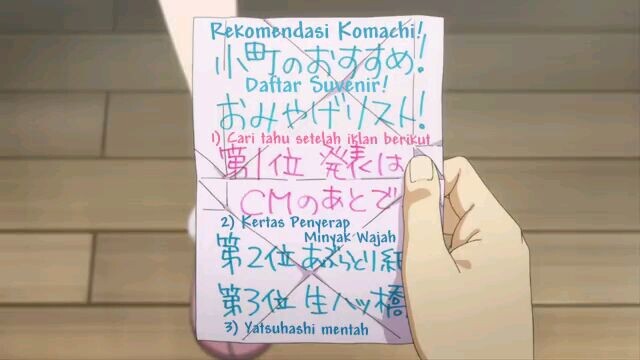 Rekomendasi Komachi!
小町のおすすめ!
Daftar Suvenir!
おみやげリスト!
1) Cari tahu setelah iklan berikut
第1位 発表は
CMのあとで
2) Kertas Penyerap
Minyak Wajah
第2位 あぶらとり紙
第3位 生八ッ橋
3) Yatsuhashi mentah